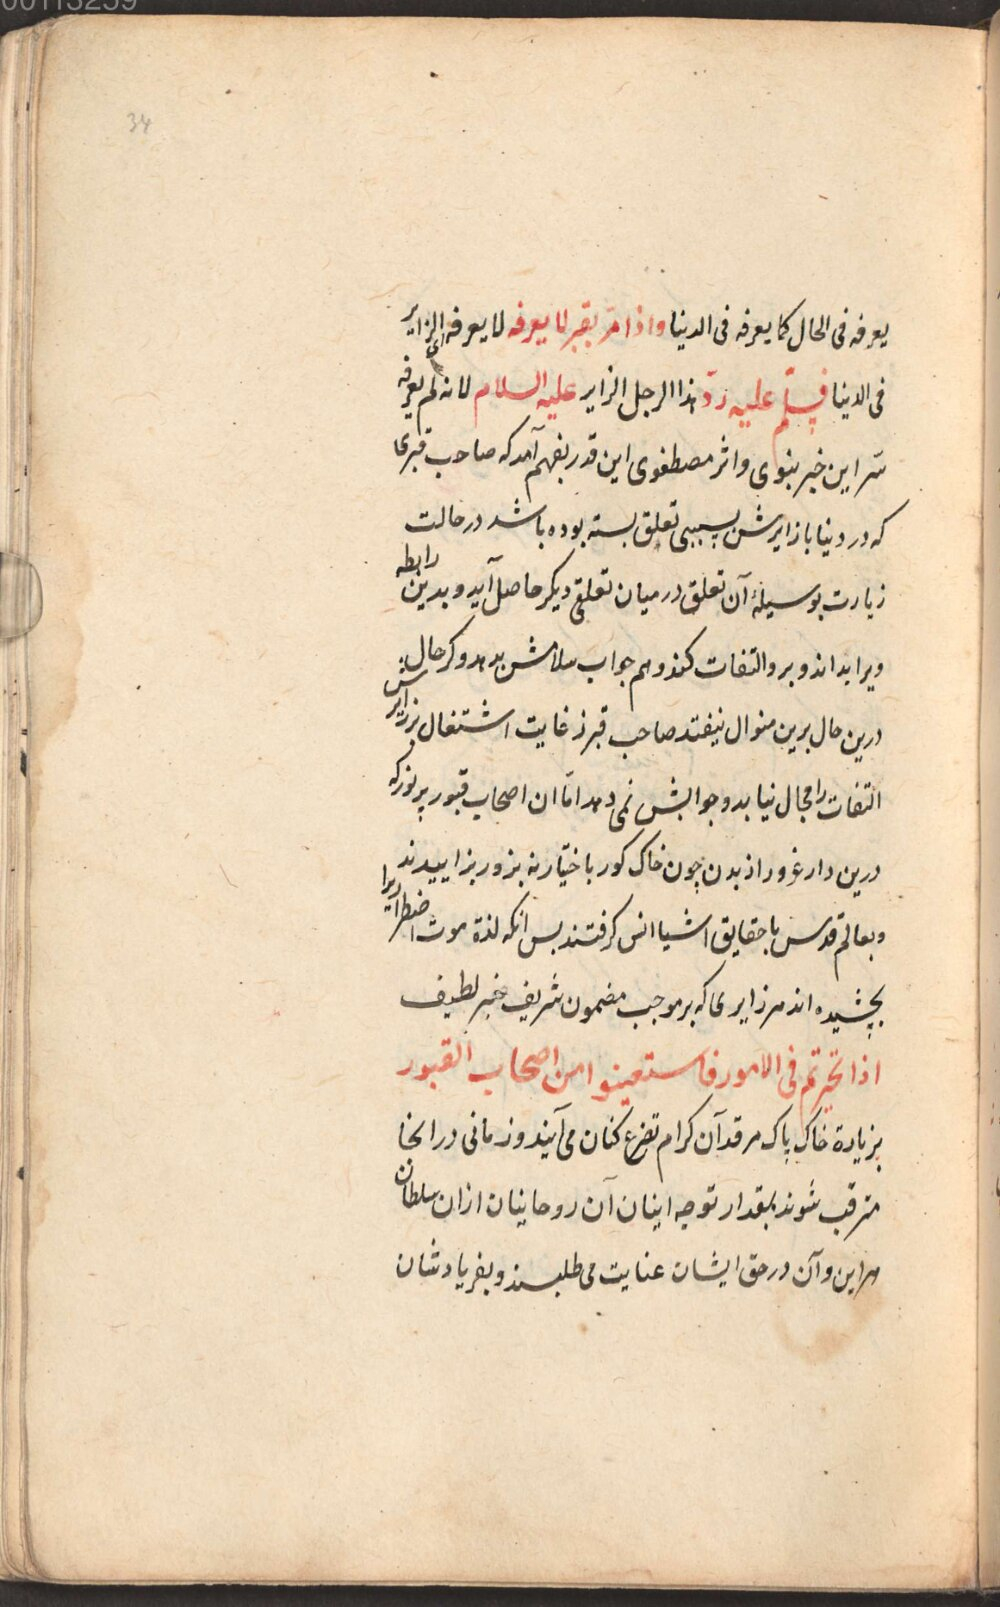 00113259
34
يعرفه فى الحال كما يعرفه فى الدنيا واذا مرّ بقبر لا يعرفه لا يعرفه اى الزاير
فى الدنيا فيسلّم عليه ردّ هذا الرجل الزاير عليه السلام لانه لم يعرفه
سّر اين خبر نبوى واثر مصطفوى اين قدر بفهم آمد كه صاحب قبرى
كه در دنيا با زايرش بسببى تعلق بسته بوده باشد در حالت
زيارت بوسيلهٔ آن تعلق در ميان تعلقى ديكر حاصل آيد و بدين رابطه
ويرا بداند و برو التفات كند وهم جواب سلامش بدهد وكر حال
درين حال برين منوال نيفتد صاحب قبر ز غايت اشتغال بزايرش
التفات را مجال نيابد و جوابش نمى دهد امّا ان اصحاب قبور پر نور كه
درين دار غرور از بدن چون خاك كور باختيار نه بزور بزاييدند
وبعالم قدس با حقايق اشيا انس كرفتند پس انكه لذة موت اضطرارى را
بچشيده اند هر زايرى كه بر موجب مضمون شريف خبر لطيف
اذا تحيرتم فى الامور فاستعينوا من اصحاب القبور
بزيارة خاك پاك مرقد آن كرام تضرع كنان مى آيند و زمانى در انجا
مترقب شوند بمقدار توجه اينان آن روحانيان ازان سلطان
هر اين و آن در حق ايشان عنايت مى طلبند و بفريادشان